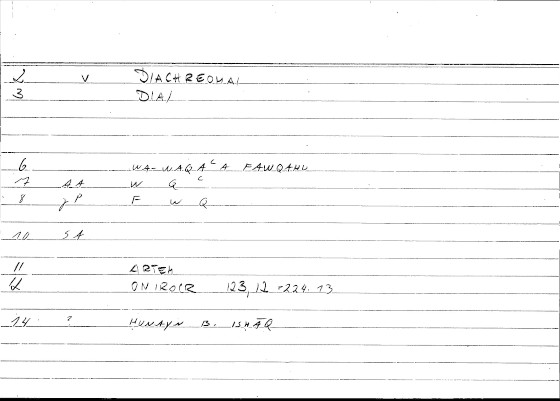 2 V DIACHREOMAI
3 DIAI
6 WA-WAQAᶜA FAWQAHU
7 AA W Q ᶜ
8 P F W Q
10 SA
11 ARTEM
12 ONIROCR 123,12 = 224.13
14 ? HUNAYN B. ISHĀQ